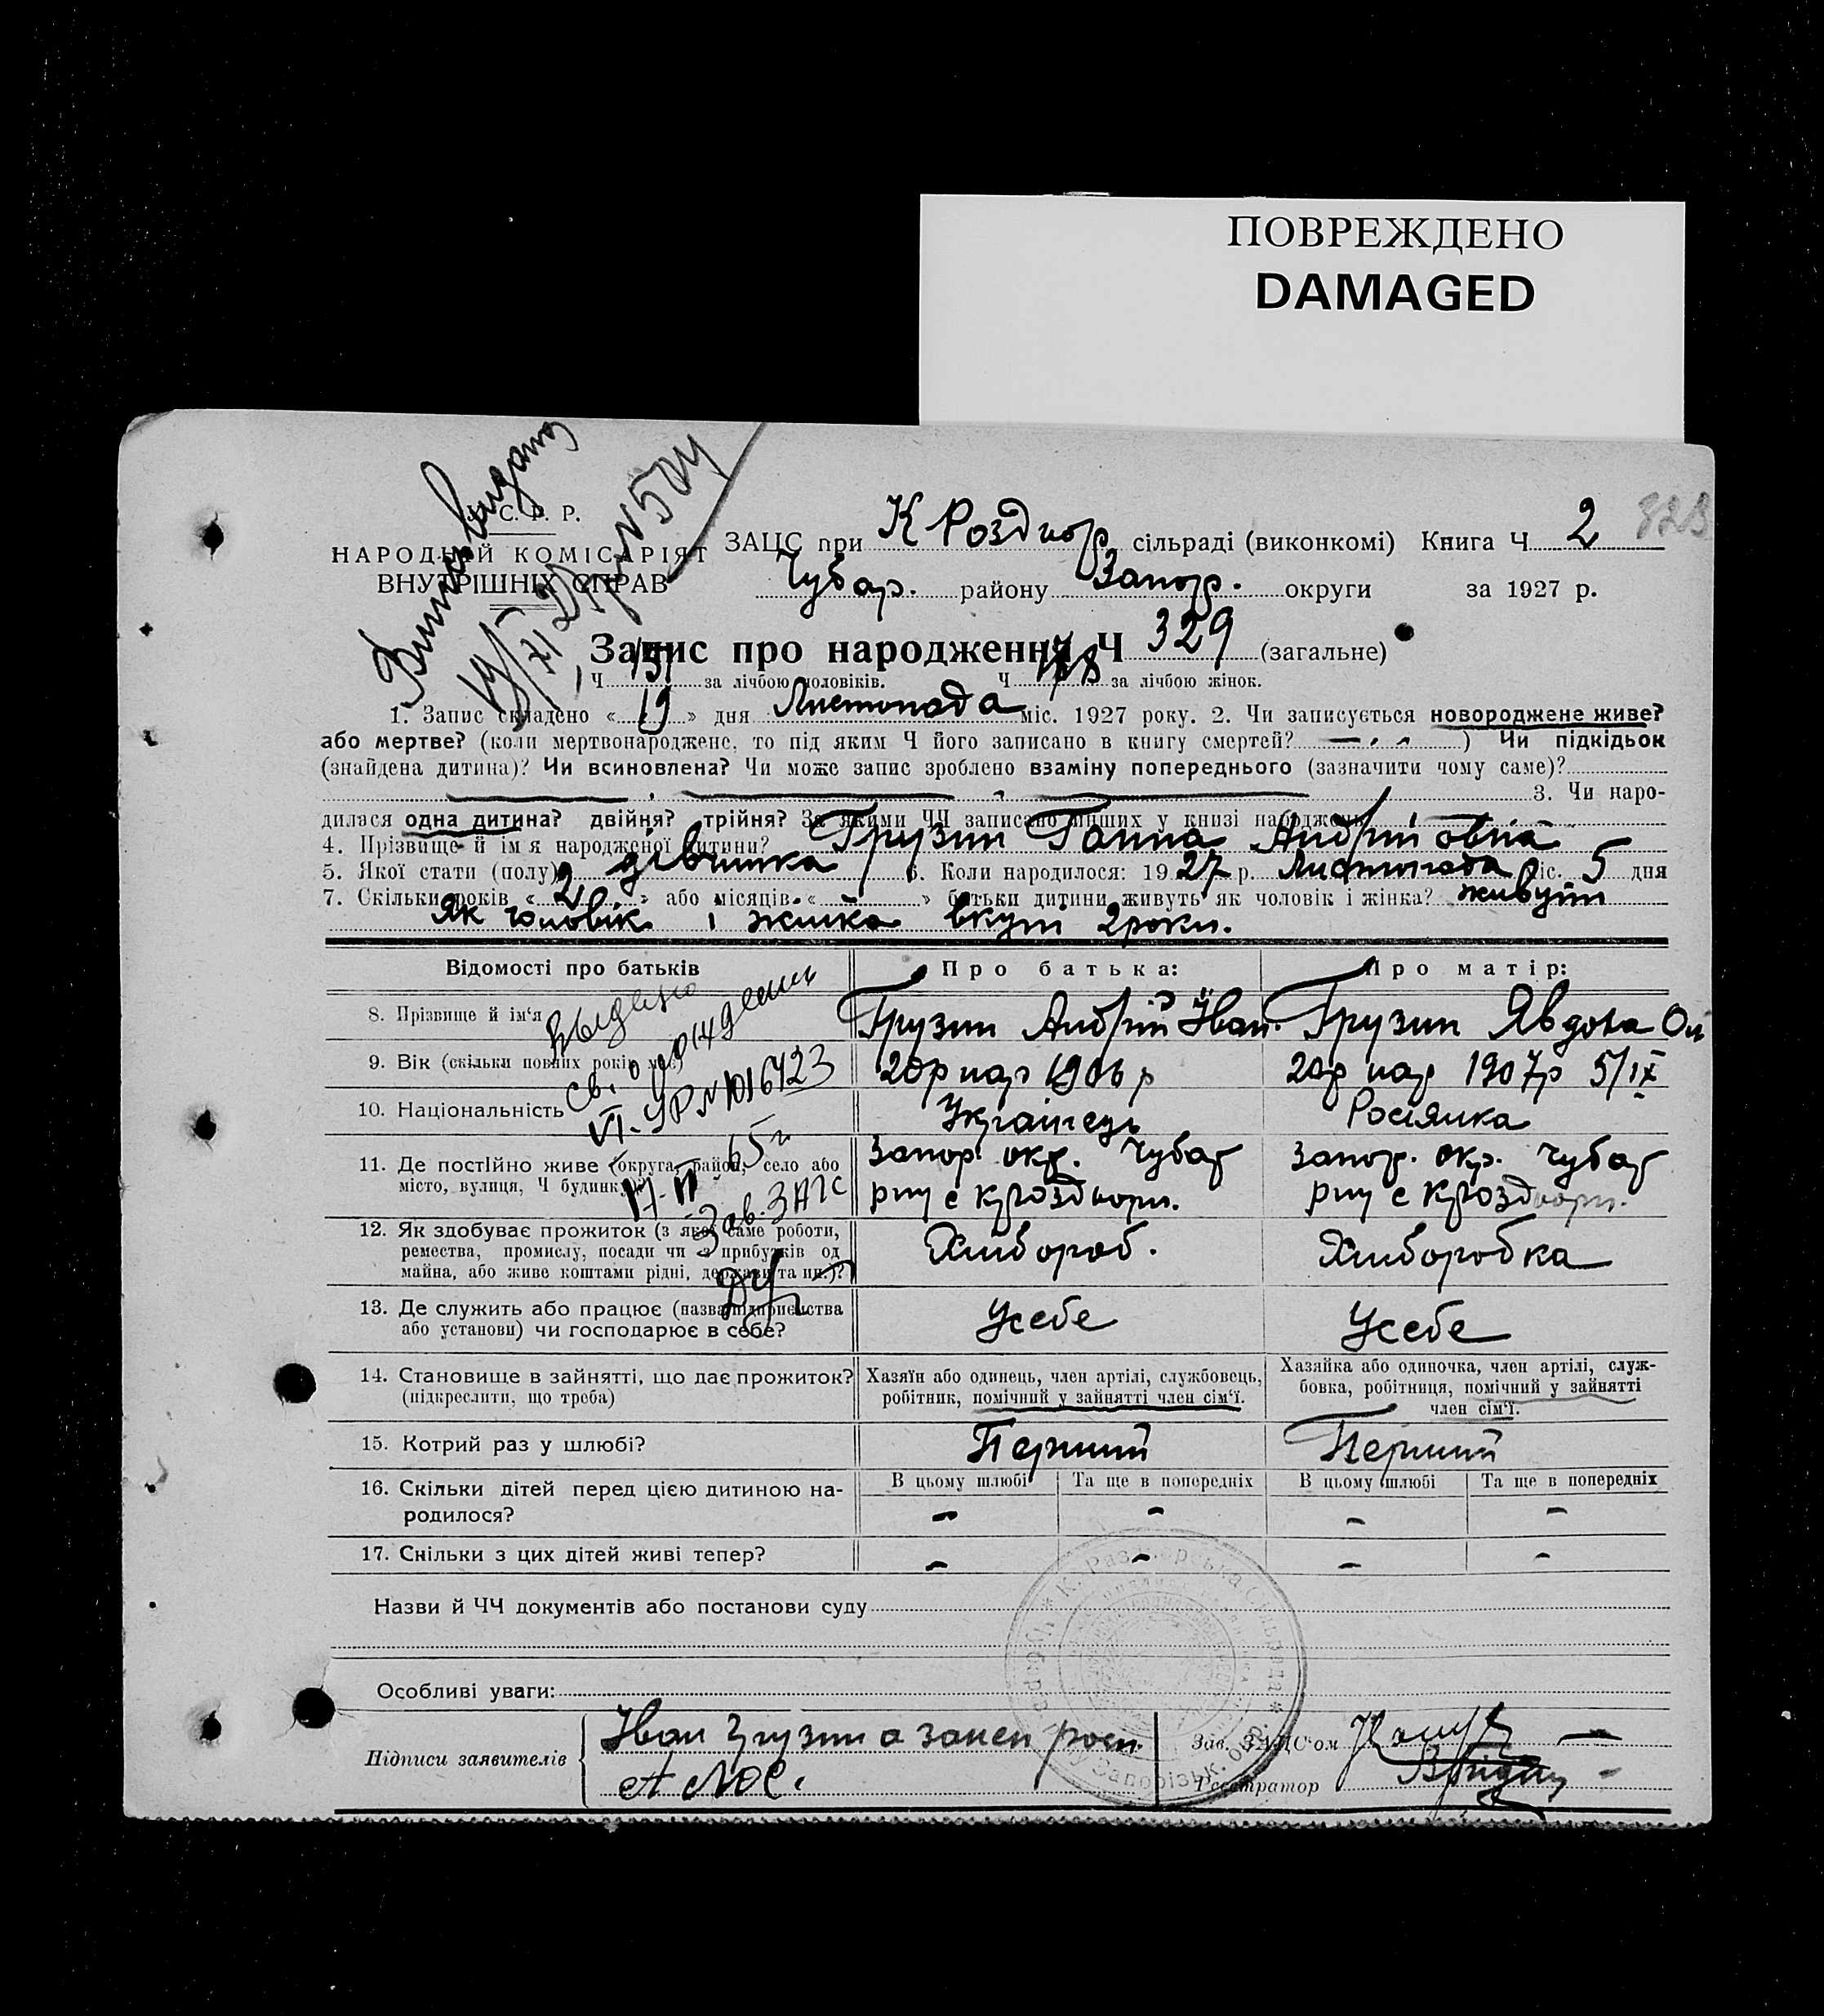 ПОВРЕЖДЕНО
DAMAGED
С. Р. Р.
НАРОДНІЙ КОМІСАРІЯТ
ВНУТРІШНІХ СПРАВ
ЗАЦС при К Роздпор сільраді (виконкомі) Книга Ч 2
Чубар. району Запор. округи за 1927 р.
Запис про народження Ч 329 (загальне)
Ч 151 за лічбою чоловіків. Ч 178 за лічбою жінок.
1. Запис складено « 19 » дня Листопада міс. 1927 року. 2. Чи записується новороджене живе?
або мертве? (коли мертвонароджене, то під яким Ч його записано в книгу смертей? ) Чи підкідьок
(знайдена дитина)? Чи всиновлена? Чи може запис зроблено взаміну попереднього (зазначити чому саме)?
3. Чи наро-
дилася одна дитина? двійня? трійня? За якими ЧЧ записано инших у книзі народжень
4. Прізвище й ім я народженої дитини? Грузин Ганна Андріївна
5. Якої стати (полу) дівчинка 6. Коли народилося: 1927 р. Листопада міс. 5 дня
7. Скільки років « 2 » або місяців « » батьки дитини живуть як чоловік і жінка? живуть
як чоловік і жінка вкупі 2 роки.
Відомості про батьків
Про батька:
Про матір:
8. Прізвище й ім‘я
Грузин Андрій Іван.
Грузин Явдоха Ол
9. Вік (скільки повних років, мес)
20р нар 1906 р
20р нар 1907р 5/IX
10. Національність
Українець
Росіянка
11. Де постійно живе (округа, район, село або
місто, вулиця, Ч будинку)?
Запор окр. Чубар
рну с
Запор. окр. Чубар
рну с
12. Як здобуває прожиток (з якої саме роботи,
ремества, промислу, посади чи з прибутків од
майна, або живе коштами рідні, держави та ин.)?
Хлібороб.
Хліборобка
13. Де служить або працює (назва підприємства
або установи) чи господарює в себе?
Усебе
Усебе
14. Становище в зайнятті, що дає прожиток?
(підкреслити, що треба)
Хазяїн або одинець, член артілі, службовець,
робітник, помічний у зайнятті член сім‘ї.
Хазяйка або одиночка, член артілі, служ-
бовка, робітниця, помічний у зайнятті
член сім‘ї.
15. Котрий раз у шлюбі?
Перший
Перший
16. Скільки дітей перед цією дитиною на-
родилося?
В цьому шлюбі
Та ще в попередніх
В цьому шлюбі
Та ще в попередніх
17. Скільки з цих дітей живі тепер?
Назви й ЧЧ документів або постанови суду
Особливі уваги:
Підписи заявителів
Иван Грузин а за
Зав. ЗАЦС‘ом
Реєстратор
Выдано
св. о рождении
VI-УР № 1016423
65 г
Зав. ЗАГС